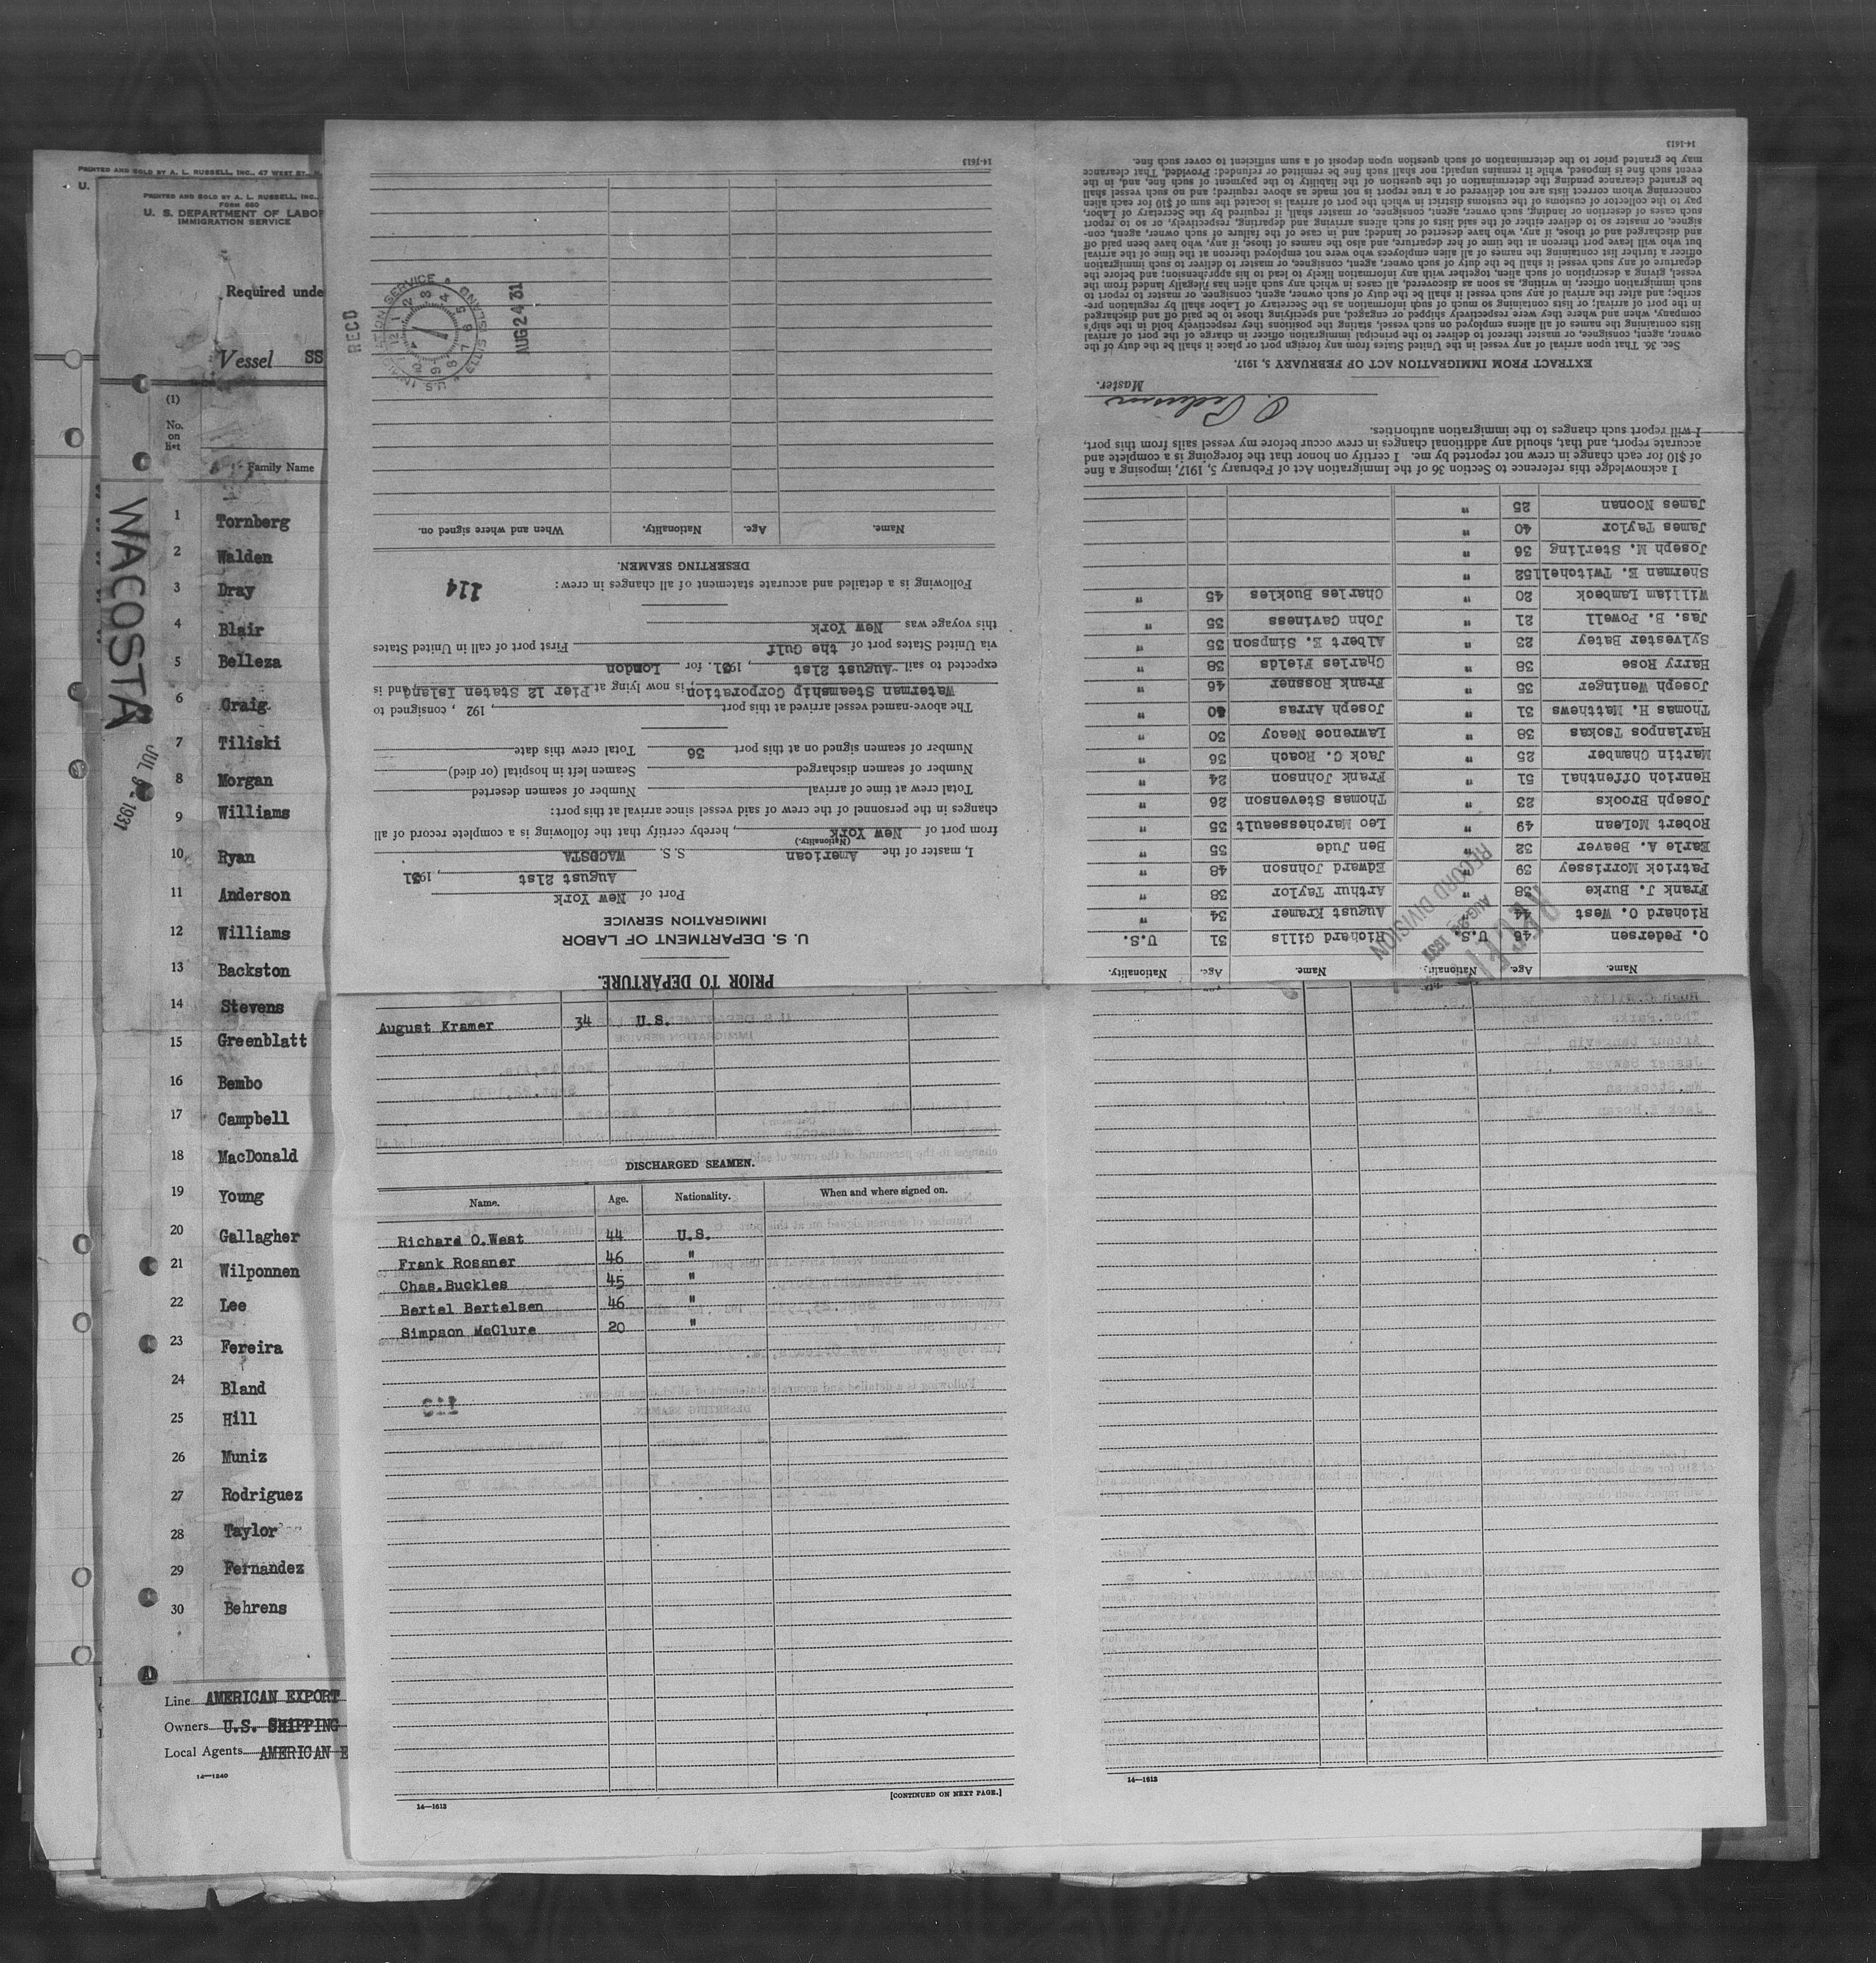 PRINTED AND SOLD BY A. L. RUSSELL, INC., 47 WEST ST.,
U.
PRINTED AND SOLD BY A. L. RUSSELL, INC.,
FORM 680
U. S. DEPARTMENT OF LABOR
IMMIGRATION SERVICE
Required unde
Vessel SS
(1)
No.
on
list
Family Name
WACOSTA
JUL 9 - 1931
1 Tornberg
2 Walden
3 Dray
4 Blair
5 Belleza
6 Craig
7 Tiliski
8 Morgan
9 Williams
10 Ryan
11 Anderson
12 Williams
13 Backston
14 Stevens
15 Greenblatt
16 Bembo
17 Campbell
18 MacDonald
19 Young
20 Gallagher
21 Wilponnen
22 Lee
23 Fereira
24 Bland
25 Hill
26 Muniz
27 Rodriguez
28 Taylor
29 Fernandez
30 Behrens
Line AMERICAN EXPORT
Owners U.S. SHIPPING
Local Agents AMERICAN E
14—1240
PRIOR TO DEPARTURE.
U. S. DEPARTMENT OF LABOR
IMMIGRATION SERVICE
Port of New York
August 21st, 1931
I, master of the American S. S. WACOSTA
(Nationality.)
from port of New York, hereby certify that the following is a complete record of all
changes in the personnel of the crew of said vessel since arrival at this port:
Total crew at time of arrival Number of seamen deserted
Number of seamen discharged Seamen left in hospital (or died)
Number of seamen signed on at this port 36 Total crew this date
The above-named vessel arrived at this port, 192 , consigned to
Waterman Steamship Corporation, is now lying at Pier 12 Staten Island and is
expected to sail August 21st, 1931. for London
via United States port of the Gulf First port of call in United States
this voyage was New York
Following is a detailed and accurate statement of all changes in crew: 114
DESERTING SEAMEN.
Name. Age. Nationality. When and where signed on.
REC'D
U.S. IMMIGRATION SERVICE ELLIS ISLAND
AUG 24 31
14-1613
Name. Age. Nationality. Name. Age. Nationality.
O. Pedersen 46 U.S. Richard Gills 31 U.S.
Richard O. West 44 " August Kramer 34 "
Frank J. Burke 38 " Arthur Taylor 38 "
Patrick Morrissey 39 " Edward Johnson 48 "
Earle A. Beaver 32 " Ben Jude 55 "
Robert McLean 49 " Leo Marchesseault 35 "
Joseph Brooks 23 " Thomas Stevenson 26 "
Henrich Offenthal 51 " Frank Johnson 24 "
Martin Chamber 25 " Jack C. Roach 36 "
Harlanpos Tsokas 38 " Lawrence Neacy 30 "
Thomas H. Matthews 31 " Joseph Arras 40 "
Joseph Weninger 35 " Frank Rossner 46 "
Harry Rose 38 " Charles Fields 38 "
Sylvester Batey 23 " Albert E. Simpson 35 "
Jas. B. Powell 21 " John Caviness 35 "
William Lambeck 20 " Charles Buckles 45 "
Sherman E. Twitchell 52 "
Joseph M. Sterling 36 "
James Taylor 40 "
James Noonan 25 "
RECEIVED
AUG 26 1931
RECORD DIVISION
I acknowledge this reference to Section 36 of the Immigration Act of February 5, 1917, imposing a fine
of $10 for each change in crew not reported by me. I certify on honor that the foregoing is a complete and
accurate report, and that, should any additional changes in crew occur before my vessel sails from this port,
I will report such changes to the immigration authorities.
O. Pedersen
Master.
EXTRACT FROM IMMIGRATION ACT OF FEBRUARY 5, 1917.
Sec. 36. That upon arrival of any vessel in the United States from any foreign port or place it shall be the duty of the
owner, agent, consignee, or master thereof to deliver to the principal immigration officer in charge of the port of arrival
lists containing the names of all aliens employed on such vessel, stating the positions they respectively hold in the ship's
company, when and where they were respectively shipped or engaged, and specifying those to be paid off and discharged
in the port of arrival; or lists containing so much of such information as the Secretary of Labor shall by regulation pre-
scribe; and after the arrival of any such vessel it shall be the duty of such owner, agent, consignee, or master to report to
such immigration officer, in writing, as soon as discovered, all cases in which any such alien has illegally landed from the
vessel, giving a description of such alien, together with any information likely to lead to his apprehension; and before the
departure of any such vessel it shall be the duty of such owner, agent, consignee, or master to deliver to such immigration
officer a further list containing the names of all alien employees who were not employed thereon at the time of the arrival
but who will leave port thereon at the time of her departure, and also the names of those, if any, who have been paid off
and discharged and of those, if any, who have deserted or landed; and in case of the failure of such owner, agent, con-
signee, or master so to deliver either of the said lists of such aliens arriving and departing, respectively, or so to report
such cases of desertion or landing, such owner, agent, consignee, or master shall, if required by the Secretary of Labor,
pay to the collector of customs of the customs district in which the port of arrival is located the sum of $10 for each alien
concerning whom correct lists are not delivered or a true report is not made as above required; and no such vessel shall
be granted clearance pending the determination of the question of the liability to the payment of such fine, and, in the
event such fine is imposed, while it remains unpaid; nor shall such fine be remitted or refunded: Provided, That clearance
may be granted prior to the determination of such question upon deposit of a sum sufficient to cover such fine.
14-1613
August Kramer 34 U.S.
DISCHARGED SEAMEN.
Name. Age. Nationality. When and where signed on.
Richard O.West 44 U.S.
Frank Rossner 46 "
Chas.Buckles 45 "
Bertel Bertelsen 46 "
Simpson McClure 20 "
14—1613
[CONTINUED ON NEXT PAGE.]
14—1613